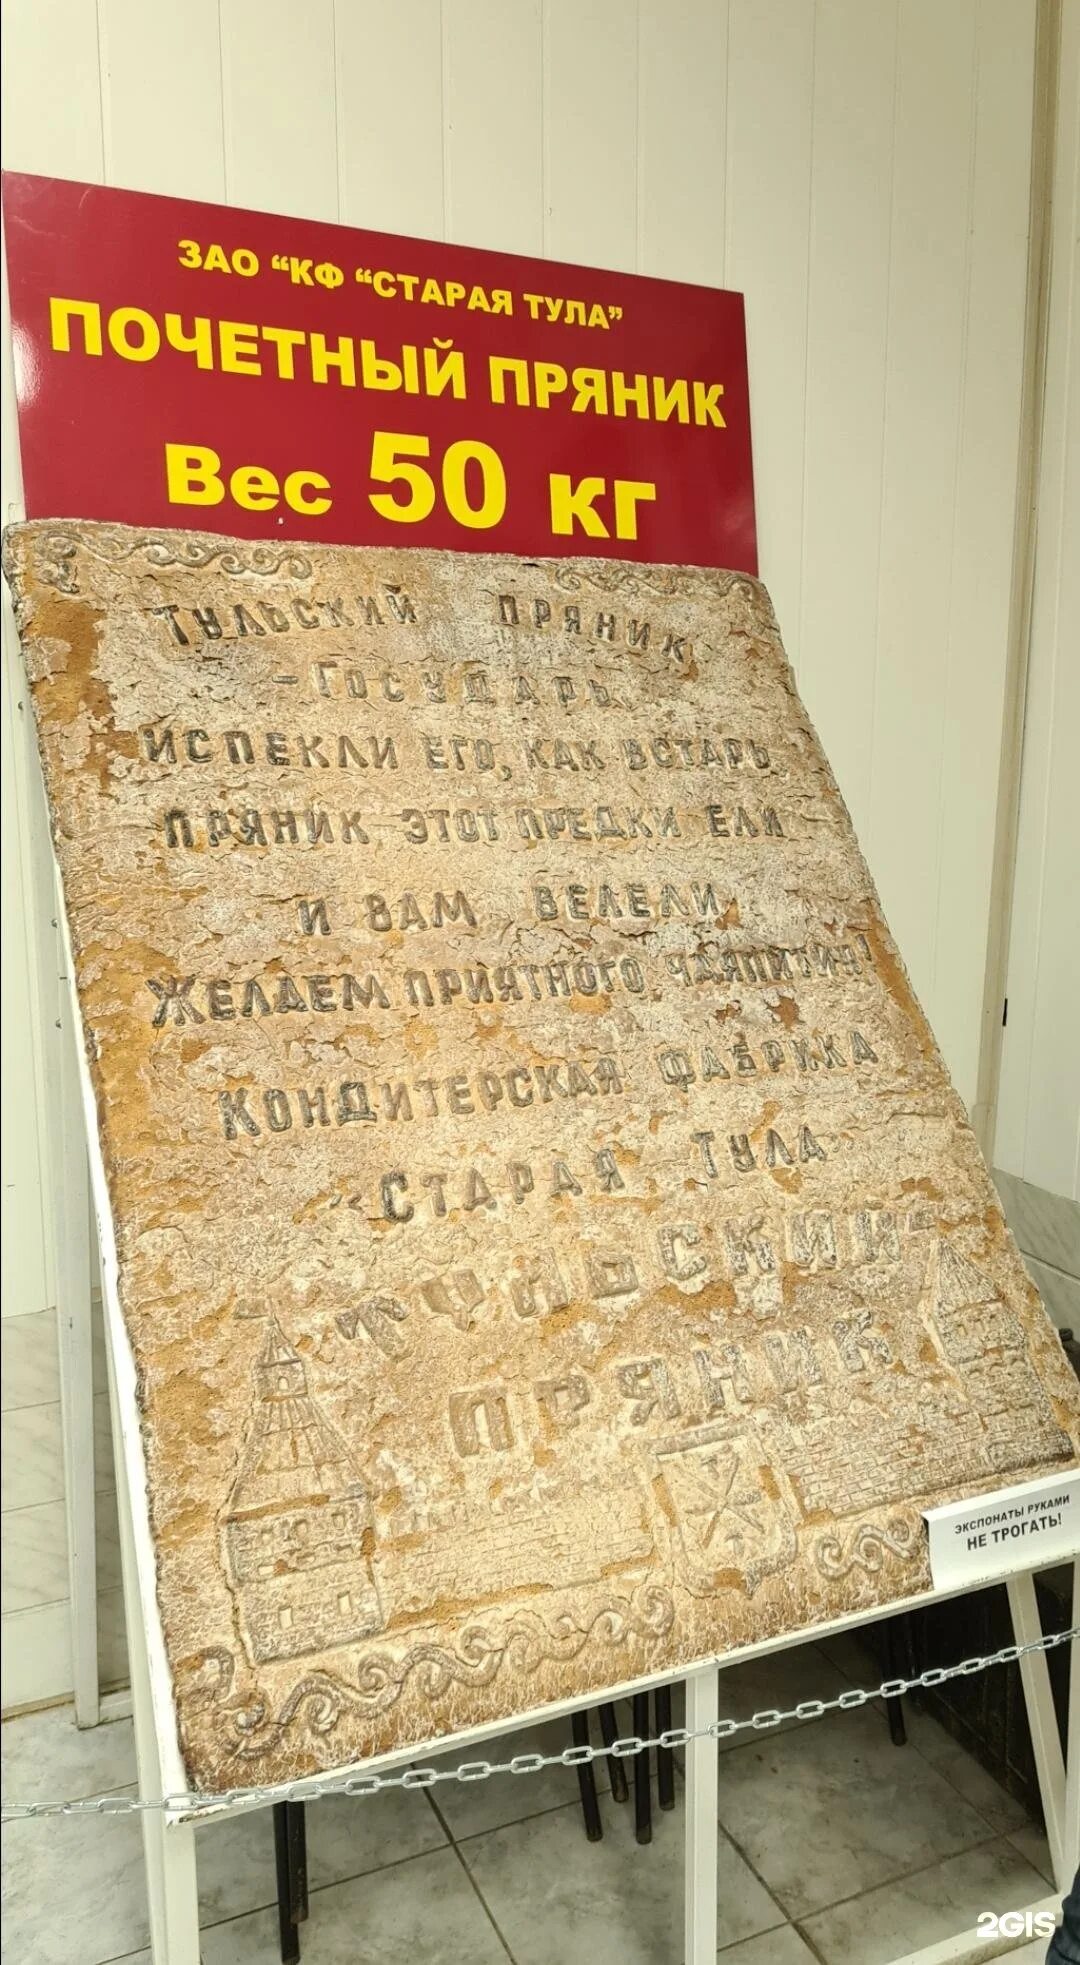 ЗАО “КФ “СТАРАЯ ТУЛА”
ПОЧЕТНЫЙ ПРЯНИК
Вес 50 кг
ТУЛЬСКИЙ ПРЯНИК
- ГОСУДАРЬ
ИСПЕКЛИ ЕГО, КАК ВСТАРЬ
ПРЯНИК ЭТОТ ПРЕДКИ ЕЛИ
И ВАМ ВЕЛЕЛИ
ЖЕЛАЕМ ПРИЯТНОГО ЧАЯПИТИЯ!
КОНДИТЕРСКАЯ ФАБРИКА
«СТАРАЯ ТУЛА»
ТУЛЬСКИЙ
ПРЯНИК
ЭКСПОНАТЫ РУКАМИ
НЕ ТРОГАТЬ!
2GIS